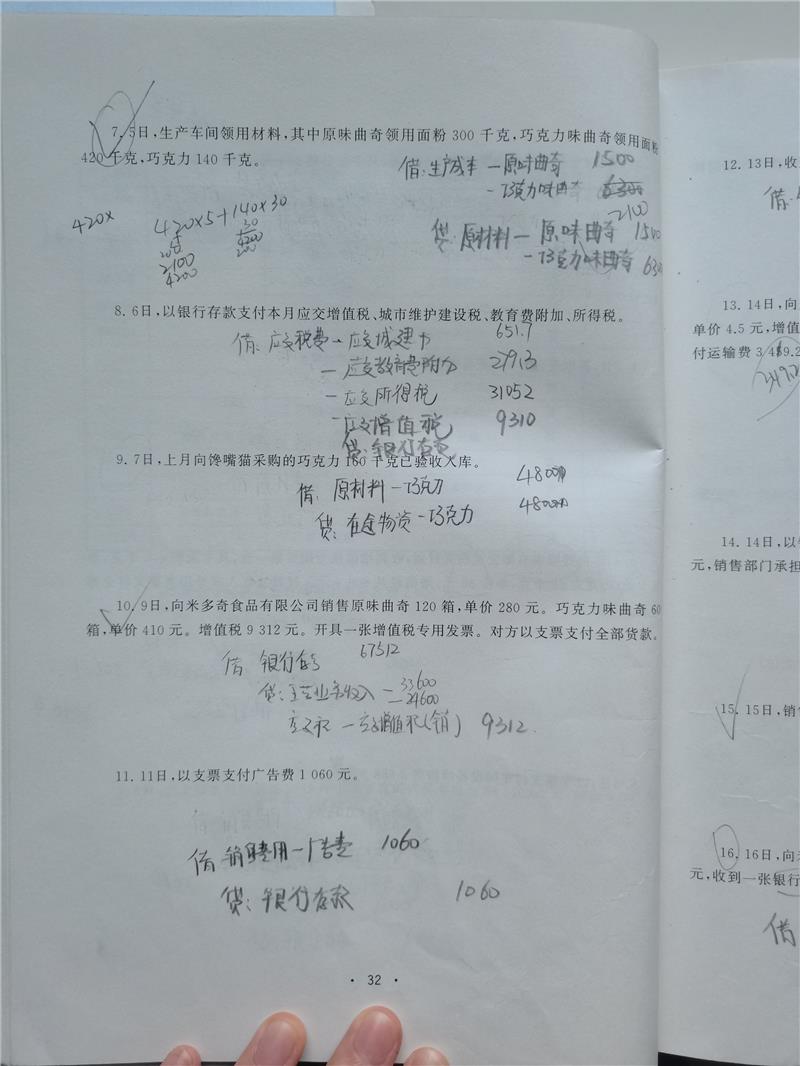 7. 5日,生产车间领用材料,其中原味曲奇领用面粉 300 千克,巧克力味曲奇领用面粉
420 千克,巧克力 140 千克。
借:生产成本 — 原味曲奇 1500
- 巧克力味曲奇
2100
420×
420×5+140×30
2100
4200
4200
贷:原材料 — 原味曲奇
- 巧克力味曲奇
8. 6日,以银行存款支付本月应交增值税、城市维护建设税、教育费附加、所得税。
借:应交税费 - 应交城建 651.7
— 应交教育费附加 279.3
- 应交所得税 31052
- 应交增值税 9310
贷:银行存款
9. 7日,上月向馋嘴猫采购的巧克力 160 千克已验收入库。
借:原材料 — 巧克力
贷:在途物资 - 巧克力
10. 9日,向米多奇食品有限公司销售原味曲奇 120 箱,单价 280 元。巧克力味曲奇 60
箱,单价 410 元。增值税 9 312 元。开具一张增值税专用发票。对方以支票支付全部货款。
借 银行存款 67512
贷:主营业务收入 — 33600
— 24600
— 应交增值税(销) 9312
11. 11日,以支票支付广告费 1 060 元。
借 销售费用 — 广告费 1060
贷:银行存款 1060
• 32 •
12. 13日,收
借:
13. 14日,向
单价 4.5 元,增值
付运输费 3
14. 14日,以
元,销售部门承担
15. 15日,销
16. 16日,向
元,收到一张银行
借